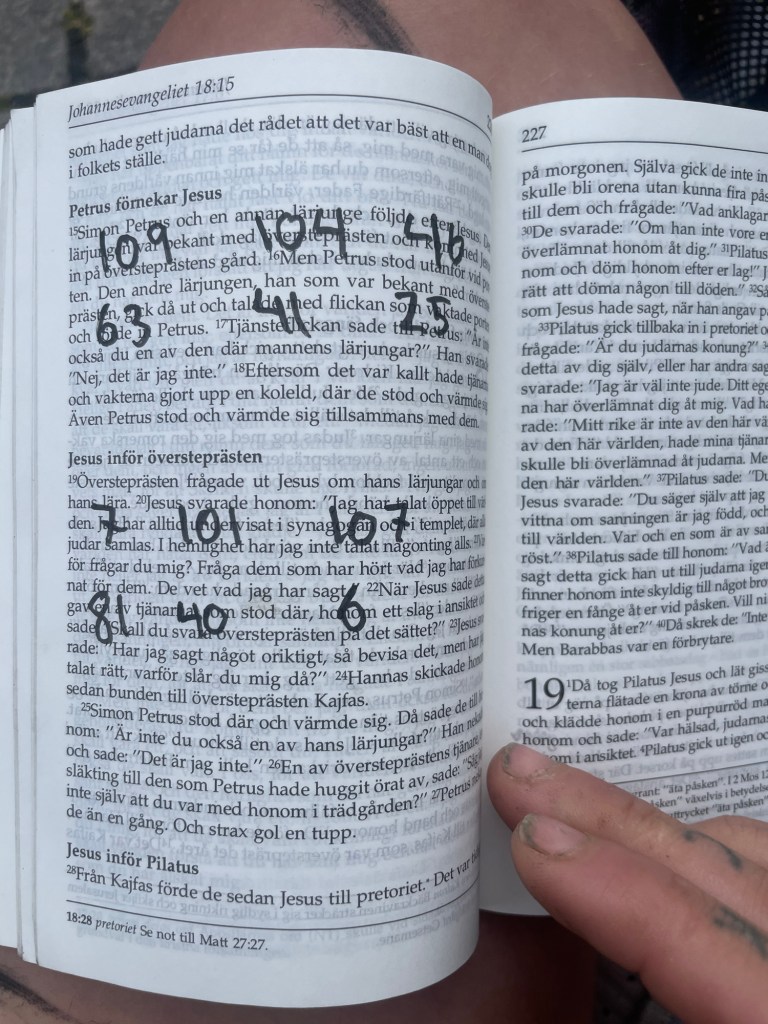 Johannesevangeliet 18:15
som hade gett judarna det rådet att det var bäst att en man
i folkets ställe.
Petrus förnekar Jesus
15Simon Petrus och en annan lärjunge följde efter Jesus.
109 104 46
lärjungen var bekant med översteprästen och med Jesus
in på översteprästens gård. 16Men Petrus stod utanför vid
ten. Den andre lärjungen, han som var bekant med
prästen, gick då ut och talade med flickan som vaktade
63 41 75
och Petrus. 17Tjänsteflickan sade till Petrus: "Är
också du en av den där mannens lärjungar?" Han
"Nej, det är jag inte." 18Eftersom det var kallt hade
och vakterna gjort upp en koleld, där de stod och värmde
Även Petrus stod och värmde sig tillsammans med dem.
Jesus inför översteprästen
19Översteprästen frågade ut Jesus om hans lärjungar och
hans lära. 20Jesus svarade honom: "Jag har talat öppet till
7 101 107
den. Jag har alltid undervisat i synagogan och i templet, där
judar samlas. I hemlighet har jag inte talat någonting alls.
för frågar du mig? Fråga dem som har hört vad jag har
nat för dem. De vet vad jag har sagt." 22När Jesus sade
81 40 6
av tjänarna som stod där, honom ett slag i ansiktet
sade: "Skall du svara översteprästen på det sättet?" 23Jesus
rade: "Har jag sagt något oriktigt, så bevisa det, men har
talat rätt, varför slår du mig då?" 24Hannas skickade
sedan bunden till översteprästen Kajfas.
25Simon Petrus stod där och värmde sig. Då sade de till
nom: "Är inte du också en av hans lärjungar?" Han
och sade: "Det är jag inte." 26En av översteprästens tjänare,
släkting till den som Petrus hade huggit örat av, sade:
inte själv att du var med honom i trädgården?" 27Petrus
de än en gång. Och strax gol en tupp.
Jesus inför Pilatus
28Från Kajfas förde de sedan Jesus till pretoriet.* Det var
18:28 pretoriet Se not till Matt 27:27.
227
på morgonen. Själva gick de inte in
skulle bli orena utan kunna fira
till dem och frågade: "Vad
30De svarade: "Om han inte vore
överlämnat honom åt dig." 31Pilatus
nom och döm honom efter er lag!"
rätt att döma någon till döden."
som Jesus hade sagt, när han angav
33Pilatus gick tillbaka in i pretoriet
frågade: "Är du judarnas konung?"
detta av dig själv, eller har andra
svarade: "Jag är väl inte jude. Ditt
na har överlämnat dig åt mig. Vad
rade: "Mitt rike är inte av den här
av den här världen, hade mina
skulle bli överlämnad åt judarna.
den här världen." 37Pilatus sade:
Jesus svarade: "Du säger själv att jag
vittna om sanningen är jag född, och
till världen. Var och en som är av
röst." 38Pilatus sade till honom: "Vad
sagt detta gick han ut till judarna
finner honom inte skyldig till något
friger en fånge åt er vid påsken. Vill
nas konung åt er?" 40Då skrek de:
Men Barabbas var en förbrytare.
19 1Då tog Pilatus Jesus och lät
terna flätade en krona av törne
och klädde honom i en purpurröd
honom och sade: "Var hälsad,
i ansiktet. 4Pilatus gick ut igen och
"äta påsken". I 2 Mos
växelvis i
uttrycket "äta påsken"